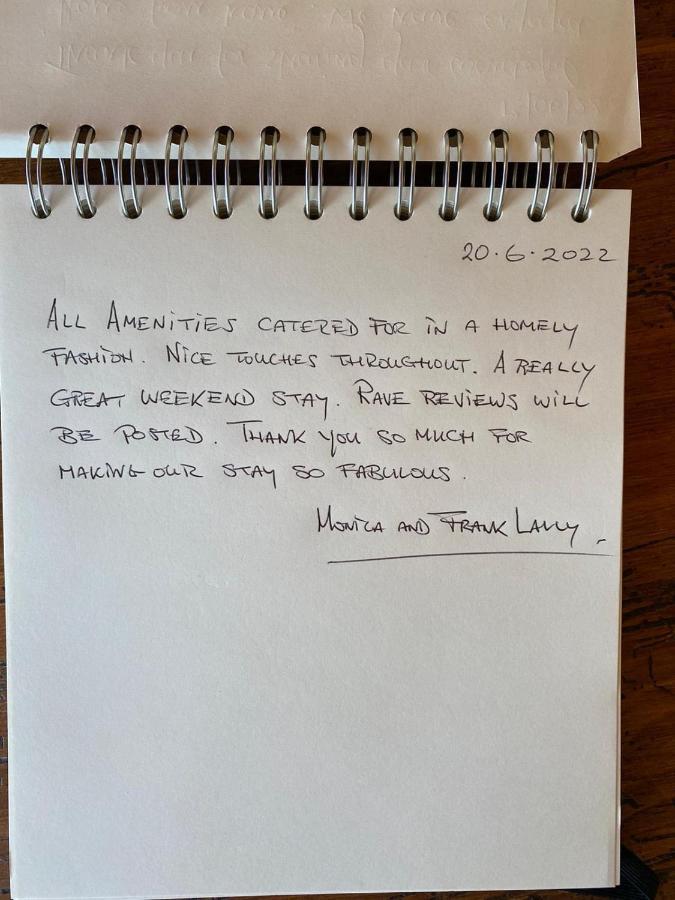 20.6.2022
ALL AMENITIES CATERED FOR IN A HOMELY
FASHION. NICE TOUCHES THROUGHOUT. A REALLY
GREAT WEEKEND STAY. RAVE REVIEWS WILL
BE POSTED. THANK YOU SO MUCH FOR
MAKING OUR STAY SO FABULOUS.
MONICA AND FRANK LALLY.